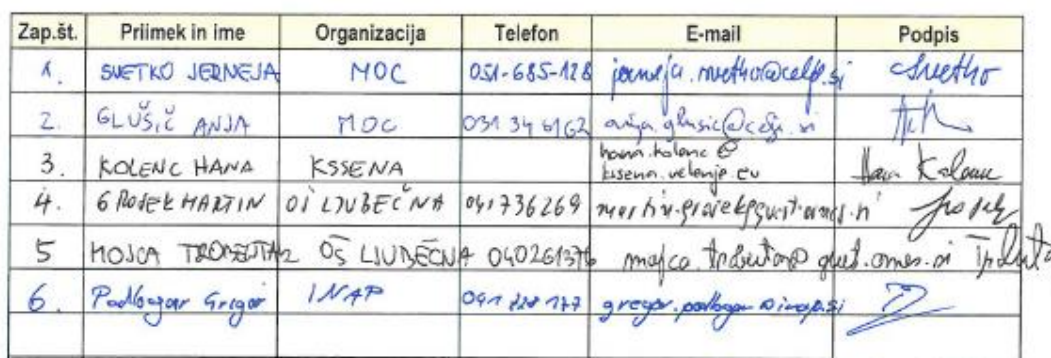 Zap.št. Priimek in ime Organizacija Telefon E-mail Podpis
1. SVETKO JERNEJA MOC 051-685-128 jerneja.svetko@celje.si Svetko
2. GLUŠIČ ANJA MOC 031 34 6162 anja.glusic@celje.si
3. KOLENC HANA KSSENA hana.kolenc@
kssena.velenje.eu Hana Kolenc
4. GROJEK MARTIN OŠ LJUBEČNA 041736269
5 MOJCA OŠ LJUBEČNA 040261376 mojca
6. Podbogar Gregor INAP 041 228 177 gregor.podbogar@inap.si